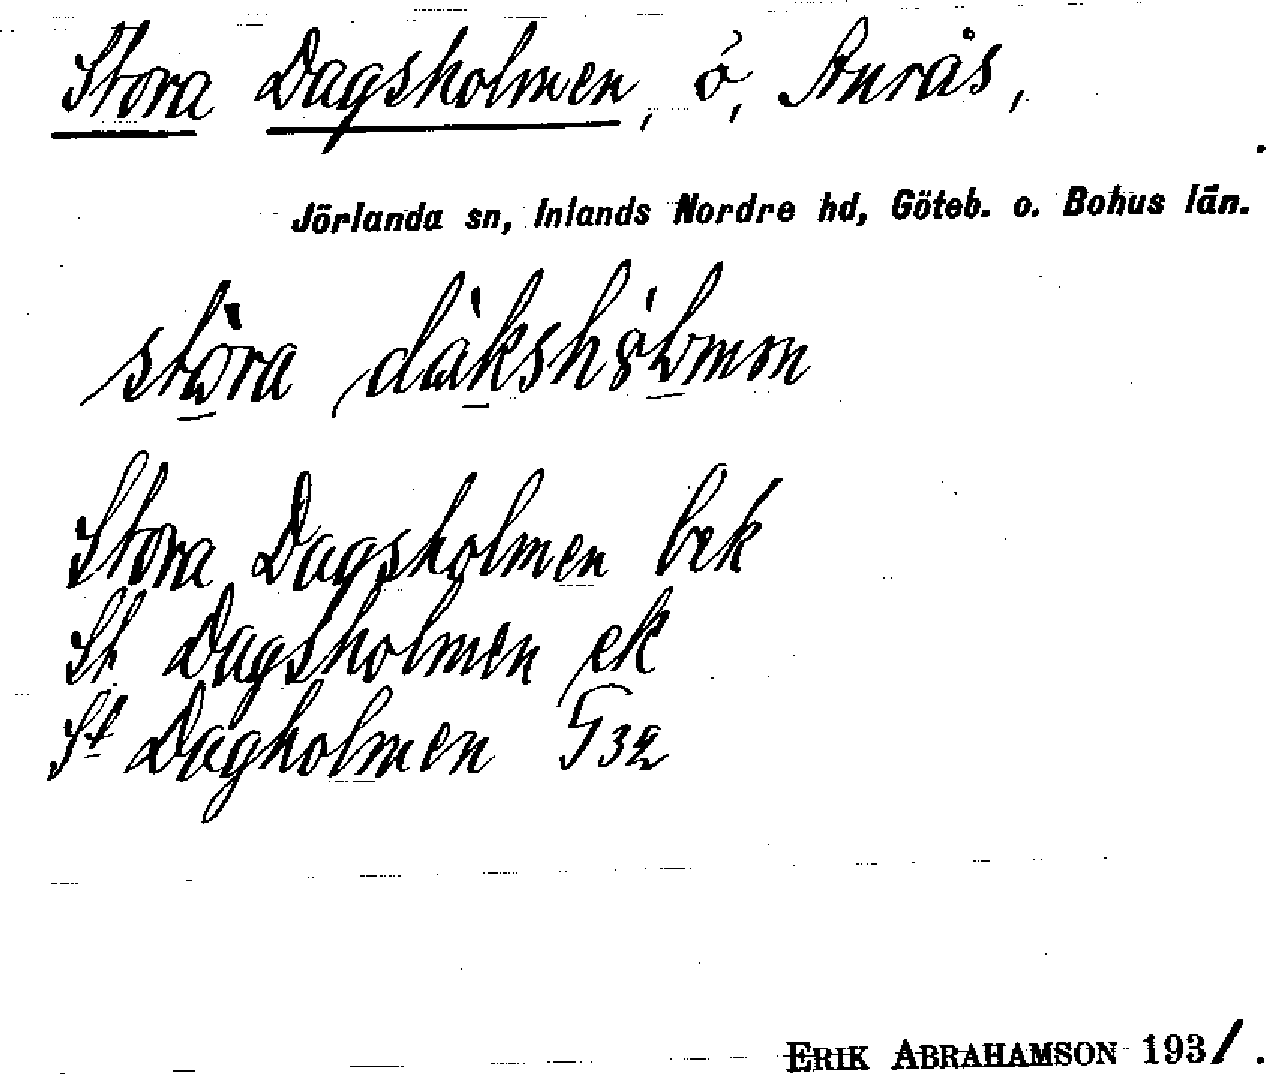 Stora Dagsholmen, ö, Anrås,
Jörlanda sn, Inlands Nordre hd, Göteb. o. Bohus län.
Stora Dagsholmen bek
St Dagsholmen ek
St Dagholmen G32
ERIK ABRAHAMSON 1931.